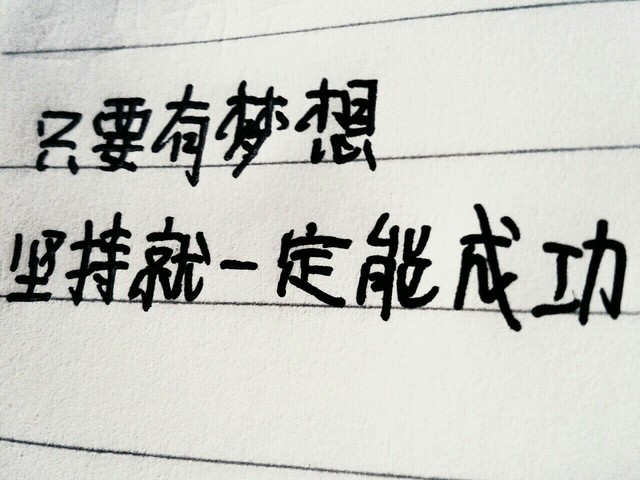 只要有梦想
坚持就一定能成功